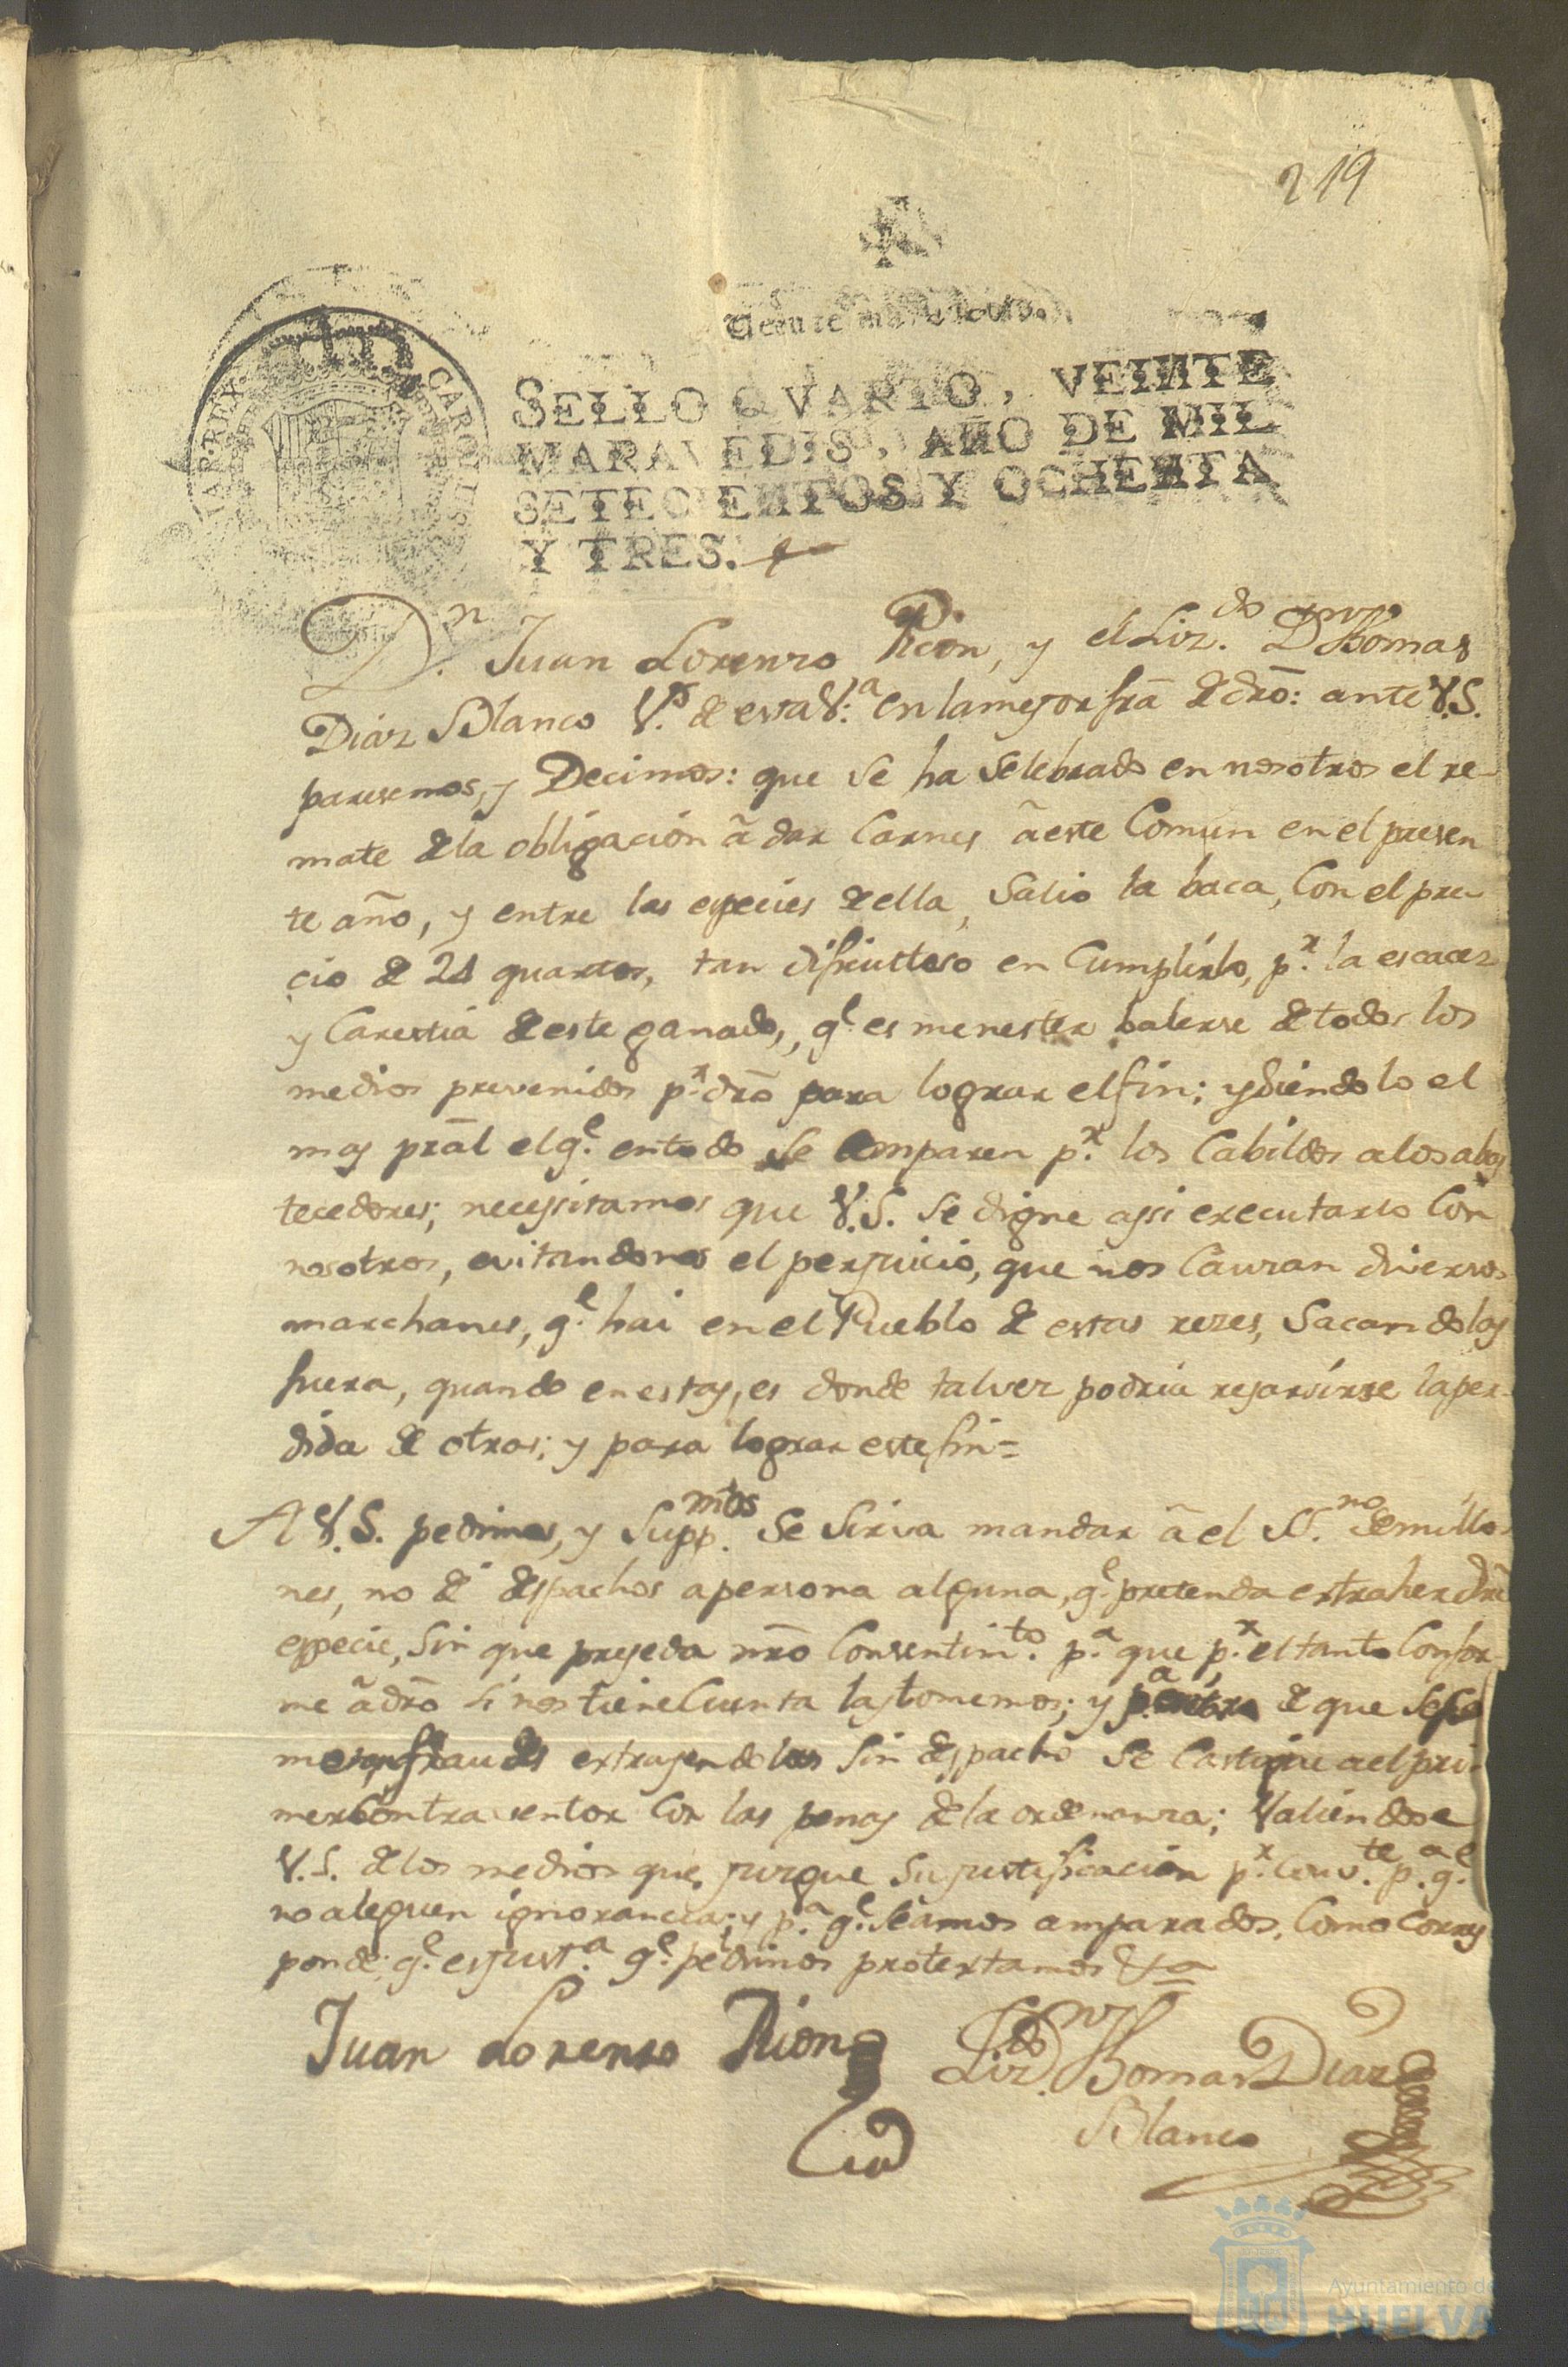 219
Veinte maravedis.
SELLO QVARTO, VEINTE
MARAVEDIS, AÑO DE MIL
SETECIENTOS Y OCHENTA
Y TRES.
CAROLUS
Dn. Juan Lorenzo Picon, y el Lizdo. Dn Thomas
Diaz Blanco Vs. de esta Va. en la mejor fra de dro: ante V.S.
paresemos, y Decimos: que se ha selebrado en nosotros el re-
mate de la obligacion â dar Carnes â este Comun en el presen
te año, y entre las especies de ella, salio la baca, Con el pre-
cio de 21 quartos, tan dificultoso en Cumplirlo, pr. la escacez
y Carestia de este ganado, qe. es menester balerse de todos los
medios prevenidos pr. dro para lograr el fin; y siendo lo el
mas pral el qe. en todo se amparen pr. los Cabildos a los abas
tecedores; necessitamos que V.S. se digne assi executarlo Con
nosotros, evitandonos el perjuicio, que nos Causan diversos
marchanes, qe. hai en el Pueblo de estas rezes, Sacandolas
fuera, quando en estas, es donde talvez podria resarsirse la per-
dida de otras; y para lograr este fin=
A V.S. pedimos, y Suppmos. Se sirva mandar â el SSno. de millo
nes, no de despachos a persona alguna, qe. pretenda extraher dha
especie, sin que preseda nro Consentimto. pa. que pr. el tanto Confor-
me â dro si nos tiene Cuenta las tomemos; y pa. de que se
fraudes extrayendolas sin despacho se Castigue a el pri-
mer Contraventor Con las penas de la ordenanza; Valiendose
V.S. de los medios que jusgue su justificacion pr. Convte. pa. qe.
no aleguen ignorancia; y pa. qe. seamos amparados, Como Corres
ponde; qe. es justa. qe. pedimos protextamos &a
Juan Lorenzo Picon
Lizdo. Dn Thomas Diaz
Blanco
Ayuntamiento de
HUELVA